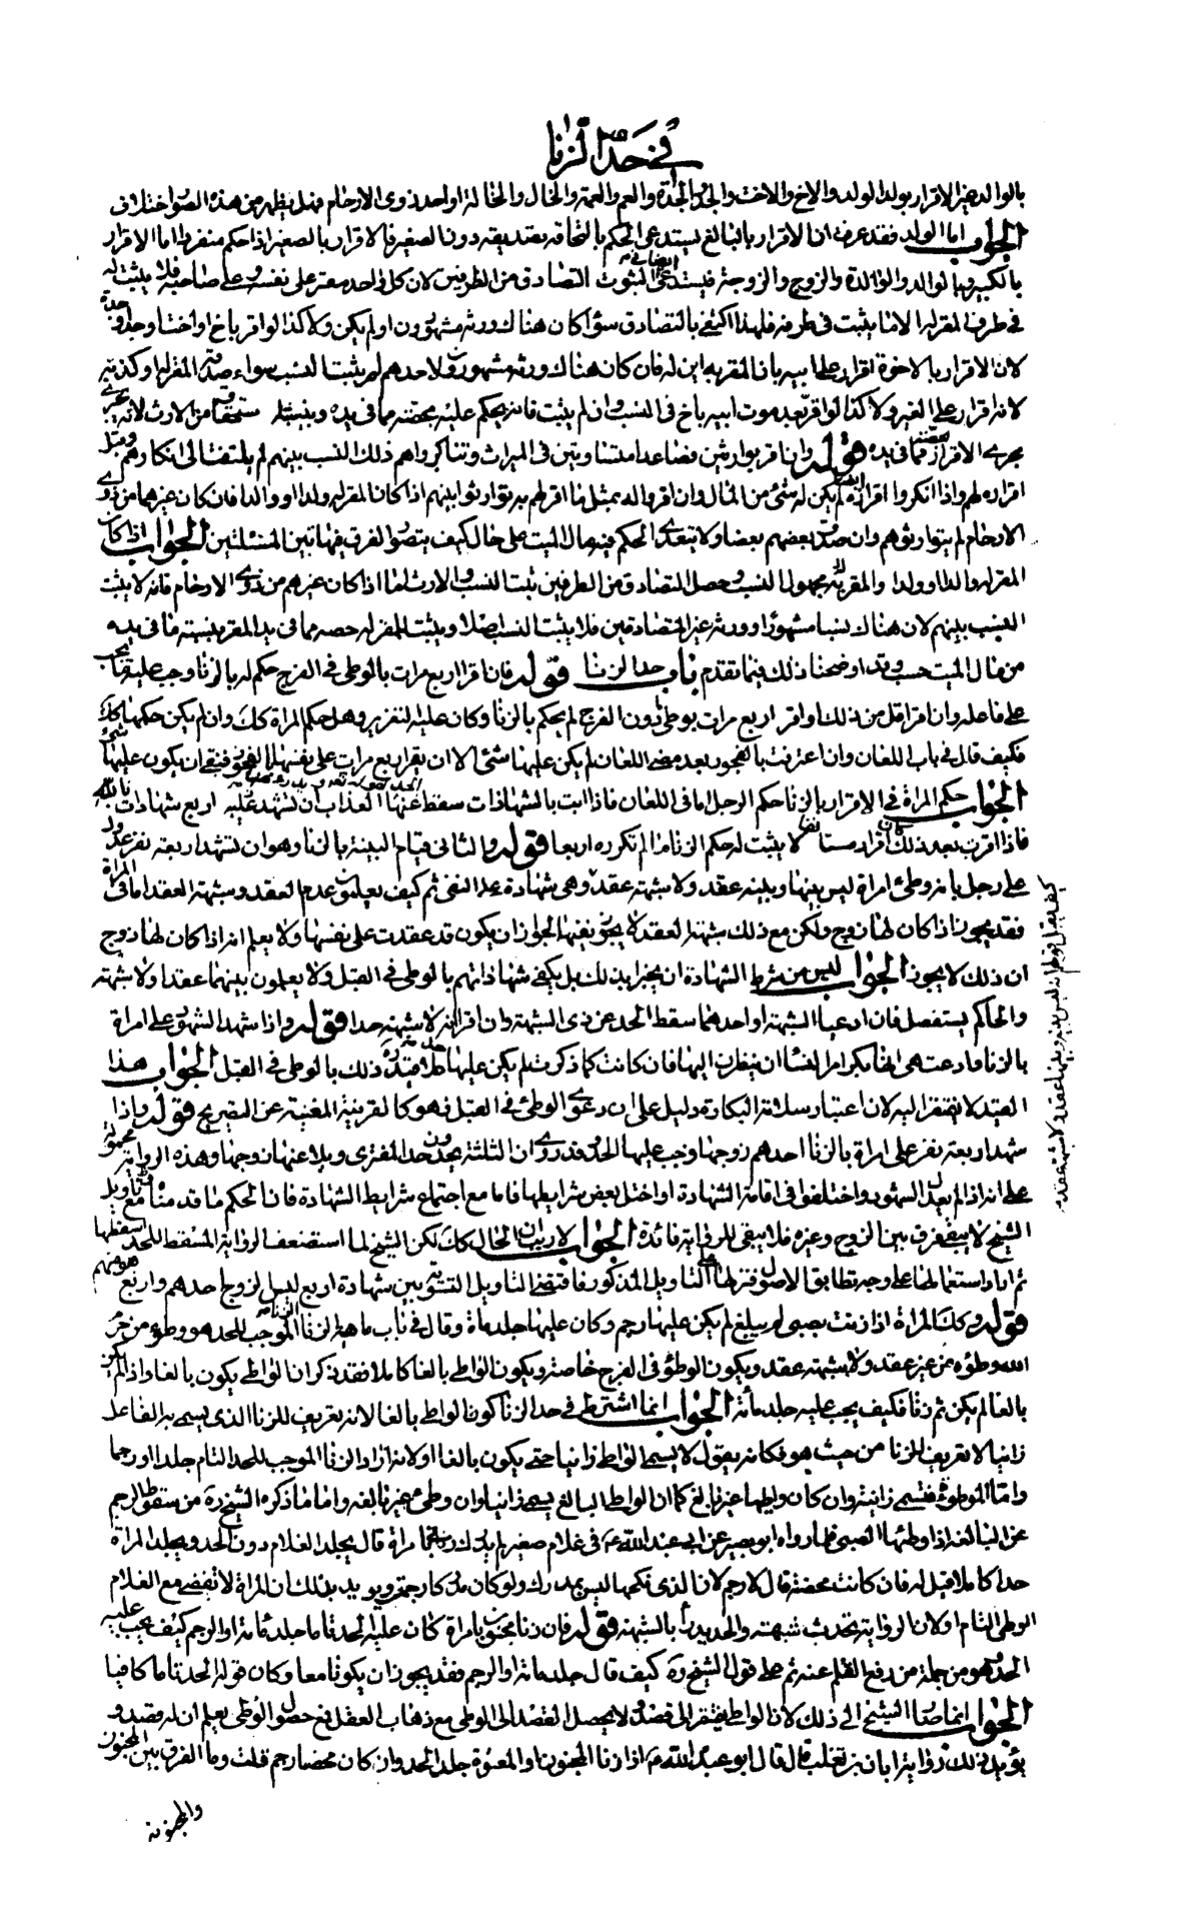 في حد الزنا
بالوالد غير الاقرار بولد الولد والاخ والاخت والجد والجدة والعم والعمة والخال والخالة او احد ذوى الارحام فهل يظهر من هذه الصور اختلاف
الجواب اما الولد فقد عرفت ان الاقرار بالبالغ يستدعى الحكم بالتحاقه تصديقه دون الصغير فالاقرار بالصغير اذا حكم منفردا اما الاقرار
بالكبير وبالوالد والوالدة والزوج والزوجة فيستدعى ايضا في لثبوت التصادق من الطرفين لان كل واحد مقر على نفسه وعلى صاحبه فلا يثبت له
في طرف المقر له الا ما يثبت في طرفه فلهذا اكتفى بالتصادق سواء كان هناك ورثة مشهورون او لم يكن ولا كذا لو اقر باخ او اخت او جد او جدة
لان الاقرار بالاخوة اقرار على ابيه بان المقر به ابن له فان كان هناك ورثة مشهورون ولا احدهم لم يثبت النسب سواء صدقه المقر له او كذبه
لانه اقرار على الغير ولا كذا لو اقر بعد موت ابيه باخ في النسب وان لم يثبت فانه يحكم عليه بحصته مما في يده وبنسبته مستحقا من الارث لانه
يجرى الاقرار مما في يده قوله وان اقر بوارثين فصاعدا متساويين في الميراث وتناكرواهم ذلك النسب بينهم لم يلتفت الى انكارهم وقبل
اقراره لهم واذا انكروا اقراره لم يكن له شئ من المال وان اقر والد بمثل ما اقر لهم به توارثوا بينهم اذا كان المقر له ولدا او والدا فان كان غيرهما من ذوى
الارحام لم يتوارثوهم وان صدق بعضهم بعضا ولا يتعدى الحكم فيه مال الميت على حال كيف يتصور الفرق في هاتين المسئلتين الجواب اذا كان
المقر له والدا او ولدا والمقر به مجهول النسب وحصل التصادق من الطرفين ثبت النسب والارث اما اذا كان غيرهم من ذوى الارحام فانه لا يثبت
النسب بينهم لان هناك نسبا مشهورا وورثة غير المتصادقين فلا يثبت النسب اصلا ويثبت للمقر له حصة مما في يد المقر بنسبته ما في يده
من مال الميت حسب وقد اوضحنا ذلك فيما تقدم باب حد الزنا قوله فان اقر اربع مرات بالوطى في الفرج حكم له بالزنا ووجب عليه ما يجب
على فاعله وان اقر اقل من ذلك او اقر اربع مرات بوطئ دون الفرج لم يحكم بالزنا وكان عليه التعزير وهل حكم المراة كك وان لم يكن حكمها كك
فكيف قال في باب اللعان وان اعترفت بالفجور بعد مضى اللعان لم يكن عليها شئ الا ان يقر اربع مرات على نفسها بالفجور فينبغى ان يكون عليها شئ
الجواب حكم المراة في الاقرار بالزنا حكم الرجل اما في اللعان فاذا اتت بالشهاذات سقط عنها العذاب ان تشهد عليه اربع شهادات بالله
فاذا اقرت بعد ذلك كان اقرار مستانفا لا يثبت له حكم الزنا ما لم تكرره اربعا قوله والثانى قيام البينة بالزنا وهو ان تشهد اربعة نفر عدول
على رجل بانه وطئ امراة ليس بينها وبينه عقد ولا شبهة عقد وهى شهادة على النفى ثم كيف يعلمون عدم العقد وشبهة العقد اما في المراة
فقد يجوز اذا كان لها زوج ولكن مع ذلك شبهة العقد لا يجوز نفيها لجواز ان يكون قد عقدت على نفسها ولا يعلم انه اذا كان لها زوج
ان ذلك لا يجوز الجواب ليس من شرط الشهادة ان يخبر بذلك بل يكفى شهاداتهم بالوطى في القبل ولا يعلمون بينهما عقدا ولا شبهة
والحاكم يستفصل فان ادعيا الشبهة او احدهما سقط الحد عن ذى الشبهة وان اقر انه لا شبهة حدا قوله واذا شهد الشهود على امراة
بالزنا وادعت هى انها بكر امر النسا ان ينظرن اليها فان كانت كما ذكرت لم يكن عليها حد هلا قيده ذلك بالوطى في القبل الجواب هذا
القيد لا يفتقر اليه لان اعتبار سلامة البكارة دليل على ان دعوى الوطئ في القبل فهو كالقرينة المغنية عن التصريح قوله واذا
شهد اربعة نفر على امراة بالزنا احدهم زوجها وجب عليها الحد وقد روى ان الثلثة يحدون حد المفترى ويلاعنها زوجها وهذه الرواية محمولة
على انه اذا لم يعدل الشهود واختلفوا في اقامة الشهادة او اختل بعض شرايطها فاما مع اجتماع شرايط الشهادة فان الحكم ما قدمناه مع تاويل
الشيخ لا يبقى فرق بين الزوج وغيره فلا يبقى للرواية فائدة الجواب لا ريب ان الحال كك لكن الشيخ لما استضعف الرواية المسقط للحد اسقطها
ثم اراد استعمالها على وجه تطابق الاصول فنزلها على التاويل المذكور فاقتضى التاويل التسوية بين شهادة اربع ليس الزوج احدهم واربع هو منهم
قوله وكك المراة اذا زنت بصبى لم يبلغ لم يكن عليها رجم وكان عليها جلد مائة وقال في باب ماهية الزنا الزنا الموجب للحد هو وطؤ من حرم
الله وطؤه من غير عقد ولا شبهة عقد ويكون الوطؤ في الفرج خاصة ويكون الواطى بالغا كاملا فقد ذكر ان الواطى يكون بالغا واذا لم يكن
بالغا لم يكن ثم زنا فكيف يجب عليه جلد مائة الجواب انما اشترط في حد الزنا كون الواطى بالغا لانه تعريف للزنا الذى يسمى به الفاعل
زانيا لا تعريف للزنا من حيث هو فكانه يقول لا يسمى الواطى زانيا حتى يكون بالغا او لانه اراد الزنا الموجب للحد التام جلدا او رجما
واما الموطوءة فتسمى زانية وان كان واطيها غير بالغ كما ان الواطى البالغ يسمى زانيا وان وطئ غير بالغة واما ما ذكره الشيخ ره من سقوط الرجم
عن البالغة اذا وطئها الصبى فلما رواه ابو بصير عن ابى عبد الله ع في غلام صغير لم يدرك زنى بامراة قال يجلد الغلام دون الحد ويجلد المراة
حدا كاملا قيل له فان كانت محصنة قال لا رجم لان الذى نكحها ليس بمدرك ولو كان مدركا رجمت ويويد بذلك ان المراة لا تفضى مع الغلام
الوطى التام او لان الرواية تحدث شبهة والحد يدرأ بالشبهة قوله فان زنا مجنون بامراة كان عليه الحد تاما جلد مائة او الرجم كيف يجب عليه
الحد وهو من جملة من رفع القلم عنه ثم على قول الشيخ ره كيف قال جلد مائة او الرجم فقد يجوز ان يكونا معا وكان قوله الحد تاما كافيا
الجواب انما صار الشيخ الى ذلك لان الواطى يفتقر الى قصد ولا يحصل القصد الى الوطى مع ذهاب العقل فمع حصول الوطى يعلم ان له قصد و
يؤيد ذلك رواية ابان بن تغلب قال قال ابو عبد الله ع اذا زنا المجنون او المعتوه جلد الحد وان كان محصنا رجم قلت وما الفرق بين المجنون
والمجنونة
كيف يقبل قولهم انه ليس بينه وبينها عقد ولا شبهة عقد